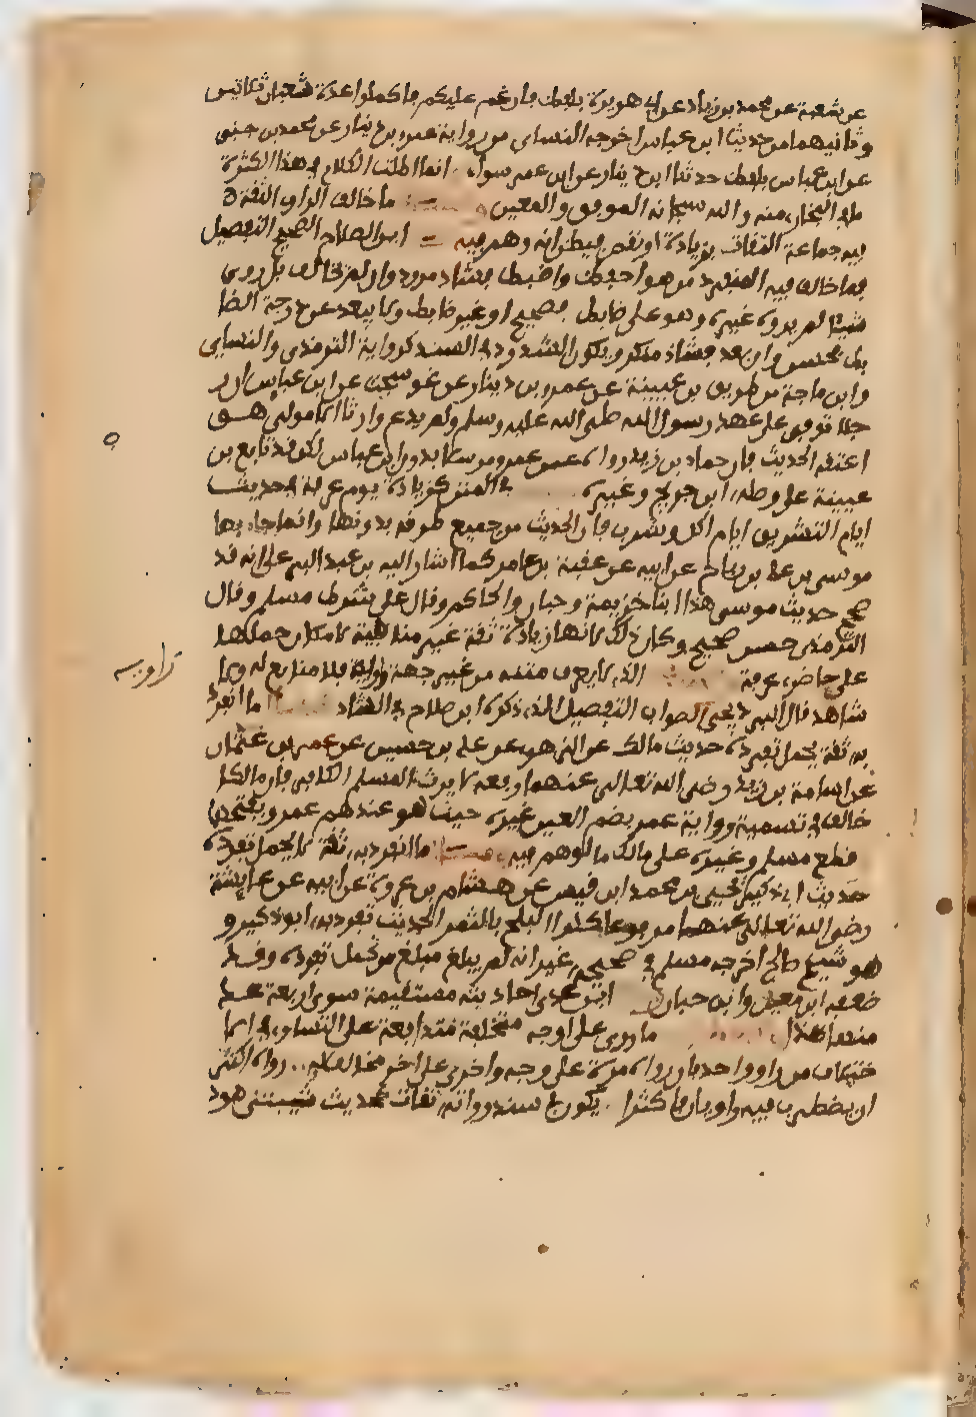 عن شعبة عن محمد بن زياد عن أبي هريرة بلفظ فإن غم عليكم فأكملوا عدة شعبان ثلاثين
وثانيهما من حديث ابن عباس أخرجه النساي من رواية عمرو بن دينار عن محمد بن حنين
عن ابن عباس بلفظ حديث ابن دينار عن ابن عمر سواء انما اطلت الكلام في هذا لكثرة
ما في البخاري منه والله سبحانه الموفق والمعين ما خالف الراوي الثقة
فيه جماعة الثقات بزيادة أو نقص فيظن انه وهم فيه ابن الصلاح الصحيح التفصيل
فما خالف فيه المنفرد من هو احفظ واضبط فشاذ مردود وان لم يخالف بل روى
شيئا لم يروه غيره وهو عدل ضابط فصحيح او غير ضابط ولا يبعد عن درجة الضا
بط فحسن وان بعد فشاذ منكر ويكون الشذوذ في السند كرواية الترمذي والنساي
وابن ماجة من طريق بن عيينة عن عمرو بن دينار عن عوسجة عن ابن عباس ان ر
جلا توفي على عهد رسول الله صلى الله عليه وسلم ولم يدع وارثا الا مولى هو
اعتقه الحديث فان حماد بن زيد رواه عن عمرو مرسلا بدون ابن عباس لكن قد تابع بن
عيينة على وصله ابن جريج وغيره في المتن كزيادة يوم عرفة في حديث
ايام التشريق ايام اكل وشرب فان الحديث من جميع طرقه بدونها وانما جاء بها
موسى بن علي بن رباح عن ابيه عن عقبة بن عامر كما اشار اليه بن عبد البر على انه قد
صحح حديث موسى هذا ابنا خزيمة وحبان والحاكم وقال على شرط مسلم وقال
الترمذي حسن صحيح وكان ذلك لانها زيادة ثقة غير منافية لامكان حملها
على حاضري عرفة الذي لا يعرف متنه من غير جهة راويه فلا متابع له ولا
راويه
شاهد قال البرديجي الصواب التفصيل الذي ذكره ابن صلاح في الشاذ ما انفرد
به ثقة يحمل تفرده حديث مالك عن الزهري عن علي بن حسين عن عمر بن عثمان
عن اسامة بن زيد رضي الله تعالى عنهما رفعه لا يرث المسلم الكافر فان مالكا
خالف في تسمية رواية عمر بضم العين غيره حيث هو عندهم عمرو بفتحها
قطع مسلم وغيره على مالك بالوهم فيه ما انفرد به ثقة لا يحمل تفرده
حديث ابي زكير يحيى بن محمد ابن قيس عن هشام بن عروة عن ابيه عن عايشة
رضي الله تعالى عنهما مرفوعا كلوا البلح بالتمر الحديث تفرد به ابو زكير و
هو شيخ صالح اخرجه مسلم في صحيحه غير انه لم يبلغ مبلغ من يحمل تفرده وقد
ضعفه ابن معين وابن حبان ابن عدي احاديثه مستقيمة سوى اربعة عد
منها هذا ما روي على اوجه مختلفة متدافعة على التساوي في الا
ختلاف من راو واحد بان رواه مرة على وجه واخرى على اخر مخالف له رواه اكثر
ان يضطرب فيه راويان فاكثر يكون في سند رواته ثقات كحديث شيبتني هود